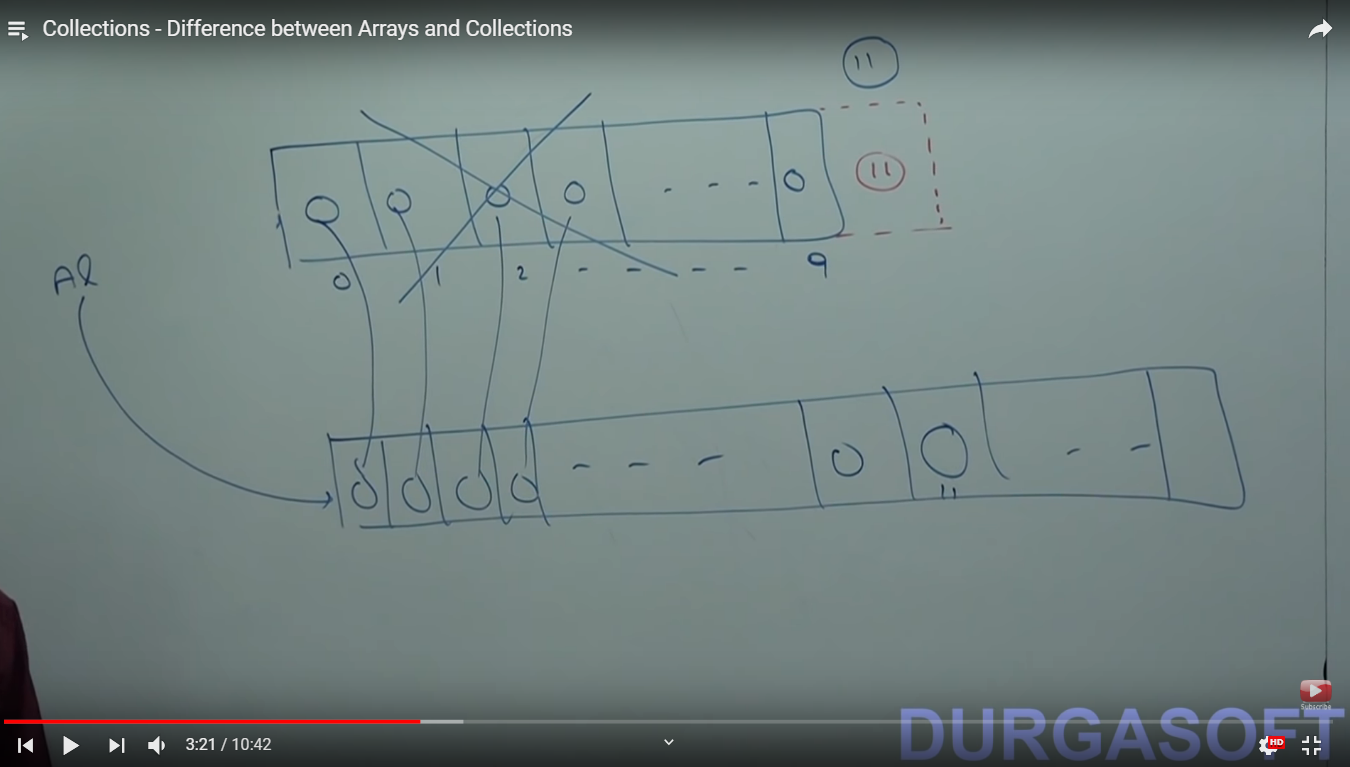 Collections - Difference between Arrays and Collections
11
11
0 1 2 - - - - 9
Al
11
Subscribe
DURGASOFT
3:21 / 10:42
HD